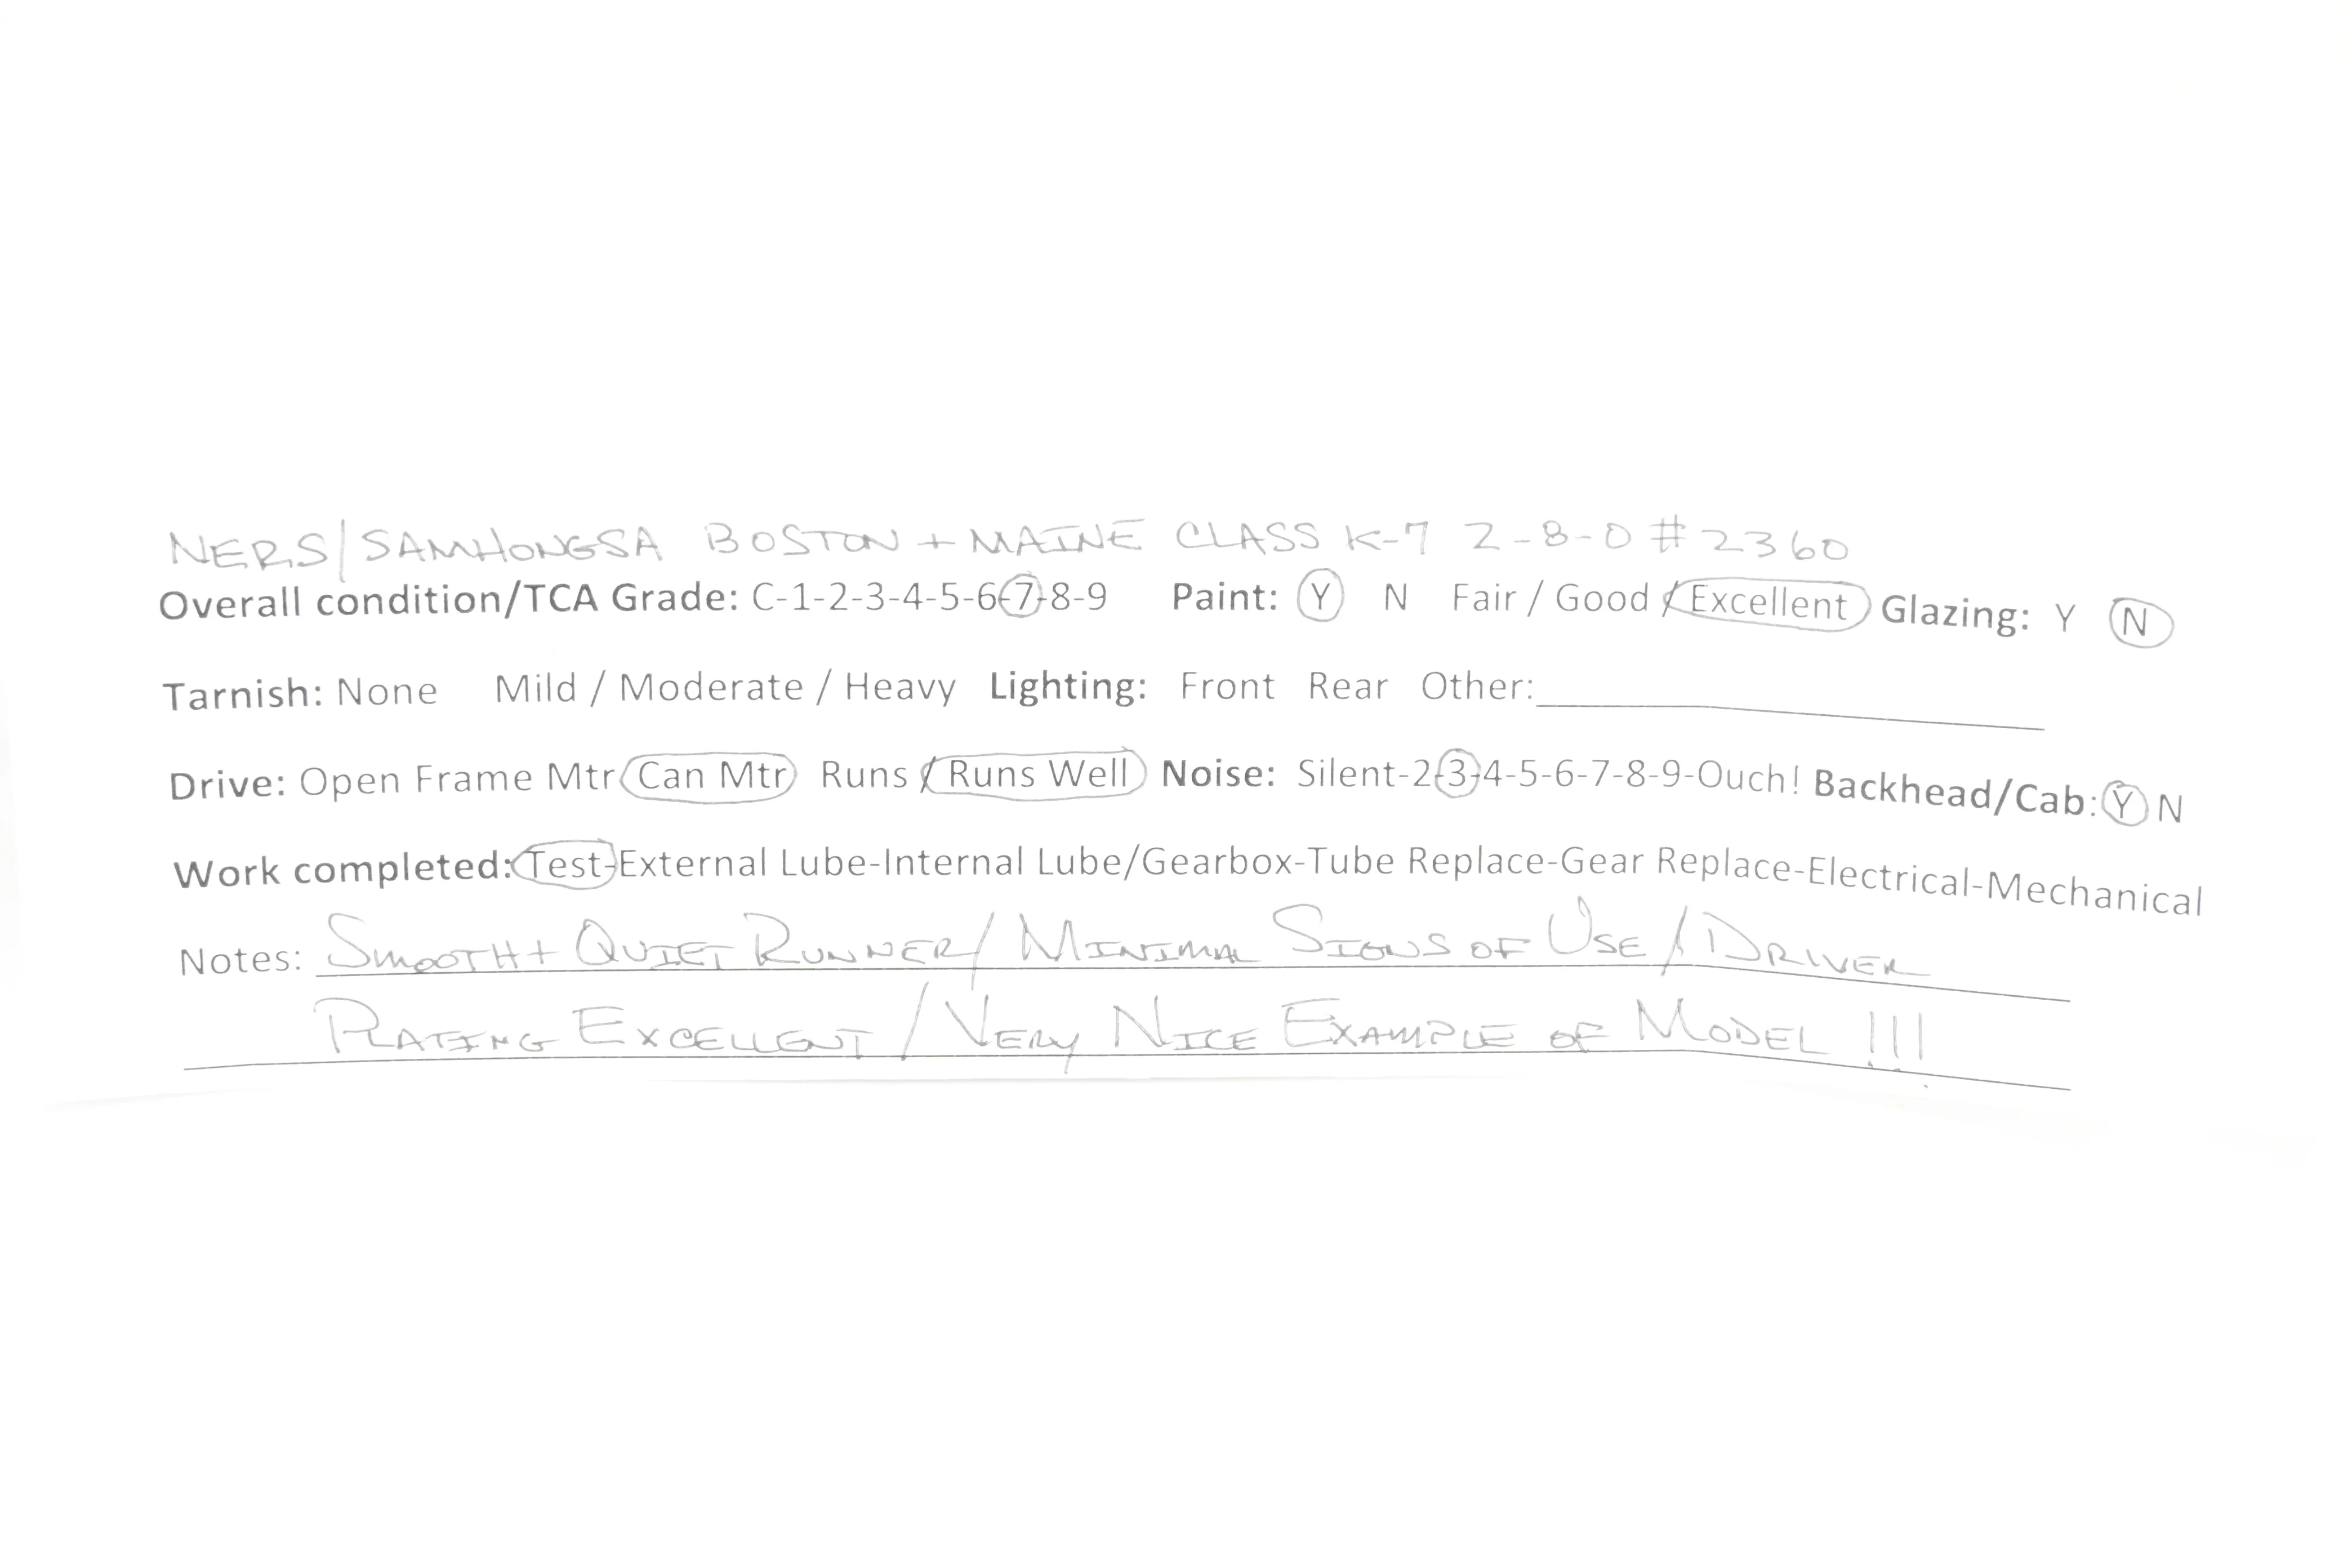 NERS/SAMHONGSA BOSTON + MAINE CLASS K-7 2-8-0 #2360
Overall condition/TCA Grade: C-1-2-3-4-5-6-7-8-9 Paint: Y N Fair / Good / Excellent Glazing: Y N
Tarnish: None Mild / Moderate / Heavy Lighting: Front Rear Other:
Drive: Open Frame Mtr/Can Mtr Runs / Runs Well Noise: Silent-2-3-4-5-6-7-8-9-Ouch! Backhead/Cab: Y N
Work completed: Test-External Lube-Internal Lube/Gearbox-Tube Replace-Gear Replace-Electrical-Mechanical
Notes: SMOOTH + QUIET RUNNER / MINIMAL SIGNS OF USE / DRIVER
PLATING EXCELLENT / VERY NICE EXAMPLE OF MODEL !!!